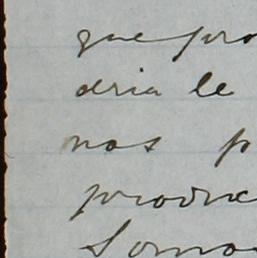 que pro
dria le
nos p
produc
Somo